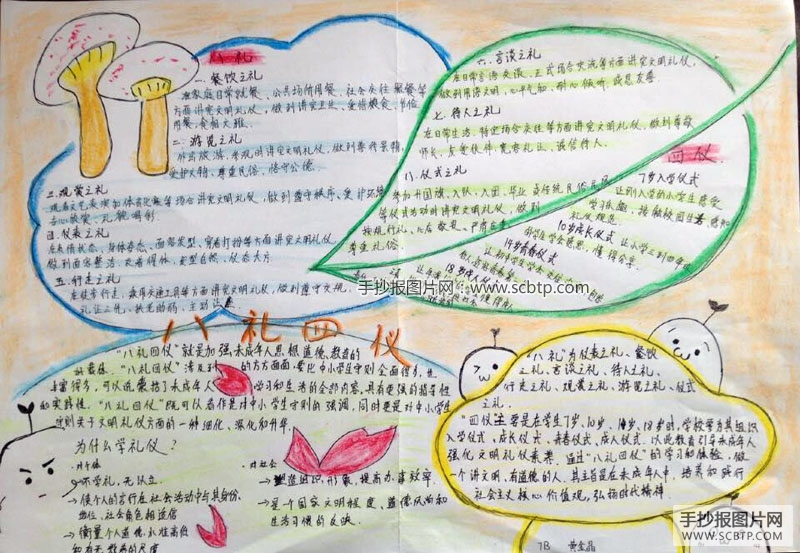 八礼
一、餐饮之礼
在家庭日常就餐、公共场所用餐、社会交往聚餐等
方面讲究文明礼仪，做到讲究卫生、爱惜粮食、节俭
用餐、食相文雅.
二、游览之礼
讲究文明礼仪，做到善待景观、
爱护文物、尊重民俗、恪守公德.
三.观赏之礼
等场合讲究文明礼仪，做到遵守秩序、爱护环境
专心欣赏、礼貌喝彩
四.仪表之礼
在表情状态、身体姿态、面容发型、穿着打扮等方面讲究文明礼仪
做到面容整洁、衣着得体、发型自然、仪态大方
五.行走之礼
在徒步行走、乘用交通工具等方面讲究文明礼仪，做到遵守交规、
礼让三先、扶老助弱、主动让座
六.言谈之礼
在日常言语交流、正式场合交流等方面讲究文明礼仪,
做到用语文明、心平气和、耐心倾听、诚恳友善.
七、待人之礼
在日常生活、特定场合交往等方面讲究文明礼仪，做到尊敬
师长、友爱伙伴、宽容礼让、诚信待人.
八.仪式之礼
参加升国旗、入队、入团、毕业
等仪式活动时讲究文明礼仪，做到
按规行礼、心存敬畏、严肃庄重
尊重礼俗.
四仪
7岁入学仪式
让刚入学的小学生感受
学习乐趣、接触校园生活、感知
礼仪规范.
10岁成长仪式 让小学三到四年级
的学生学会感恩、懂得分享.
14岁青春仪式
18岁成人仪式
手抄报图片网:www.scbtp.com
八礼四仪
"八礼四仪"就是加强未成年人思想道德教育的
好载体. "八礼四仪"涉及到的方方面面，要比中小学生守则全面得多,也
丰富得多，可以说囊括了未成年人学习和生活的全部内容,具有更强的指导性
和实践性. "八礼四仪"既可以看作是对中小学生守则的强调，同时更是对中小学生
守则关于文明礼仪方面的一种细化、深化和升华.
为什么学礼仪?
·对个体
→ 不学礼，无以立
→ 使个人的言行在社会活动中与其身份、
地位、社会角色相适应
→ 衡量个人道德水准高低
和有无教养的尺度
·对社会
→ 塑造组织形象、提高办事效率
→ 是一个国家文明程度、道德风尚和
生活习惯的反映.
"八礼"为仪表之礼、餐饮
之礼、言谈之礼、待人之礼、
行走之礼、观赏之礼、游览之礼、仪式
之礼.
"四仪"主要是在学生7岁、10岁、14岁、18岁时,学校等为其组织
入学仪式、成长仪式、青春仪式、成人仪式.以此教育引导未成年人
强化文明礼仪素养.通过"八礼四仪"的学习和体验，做
一个讲文明、有道德的人,其主旨是在未成年人中，培养和践行
社会主义核心价值观,弘扬时代精神.
7B 黄金晶
手抄报图片网
www.scbtp.com